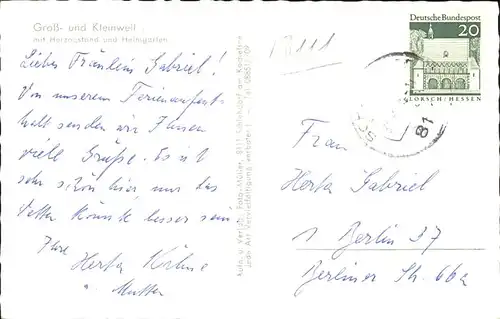 Groß- und Kleinweil
mit Herzogstand und Heimgarten
Liebes Fräulein Gabriel!
Von unserem Ferienaufent-
halt senden wir Ihnen
viele Grüße. Es ist
sehr schön hier, nur das
Wetter könnte besser sein
Ihre
Herta
u. Mutter
Aufn. u. Verlag: Foto-Müller, 8111
Jede Art Vervielfältigung verboten!
Deutsche Bundespost
20
LORSCH/HESSEN
81
Frau
Herta Gabriel
1 Berlin 37
Berliner Str. 66a